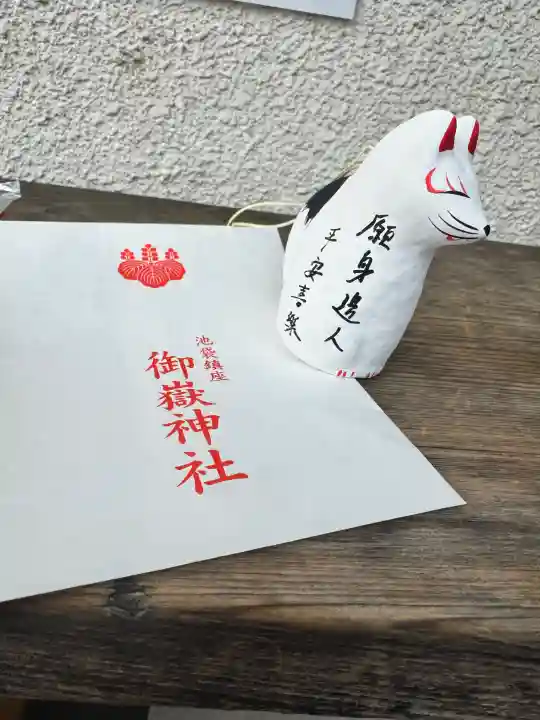 池袋鎮座
御嶽神社
願身造人
平安喜樂